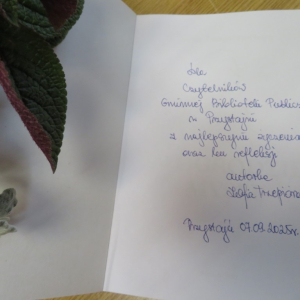 Dla
Czytelników
Gminnej Biblioteki Public
w Przystajni
z najlepszymi życzenia
oraz ku refleksji
autorka
Zofia
Przystajń 07.03.2025r.